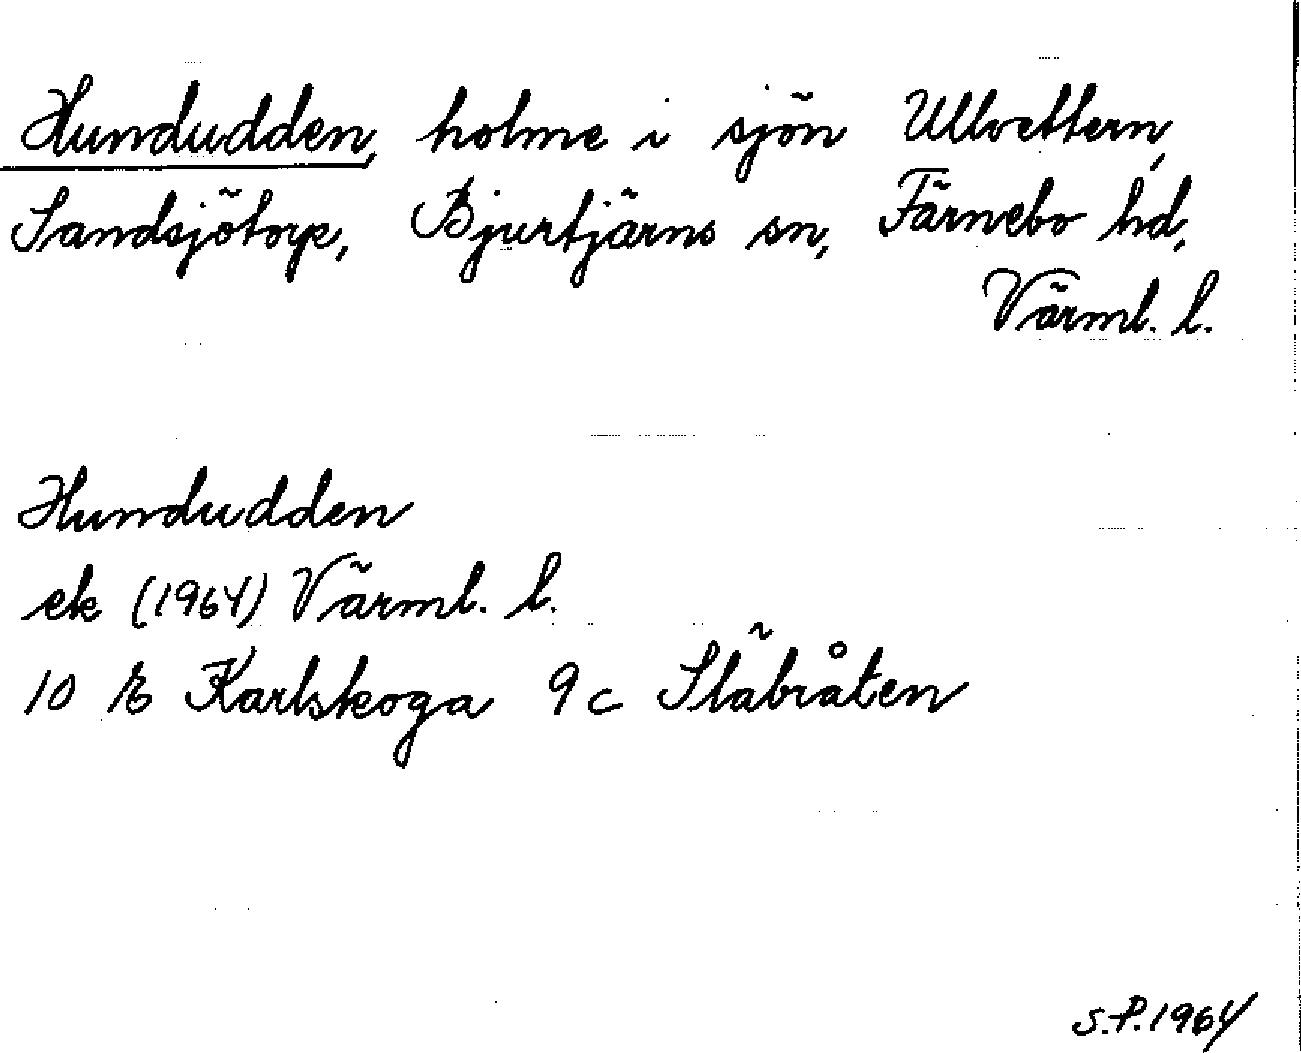 Hundudden, holme i sjön Ullvettern,
Sandsjötorp, Bjurtjärns sn, Färnebo hd,
Värml. l.
Hundudden
ek (1964) Värml. l.
10 E Karlskoga 9c Släbråten
S.P.1964